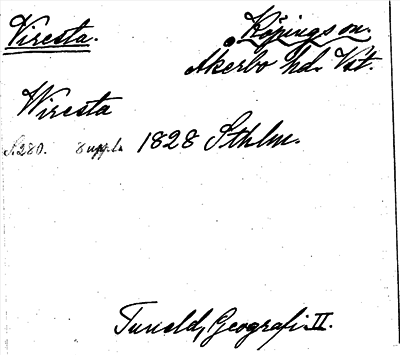 Viresta.
Köpings sn.
Åkerbo hd. Vst.
Wiresta
S. 280. 8 uppl. 1828 Sthlm.
Tuneld, Geografi II.